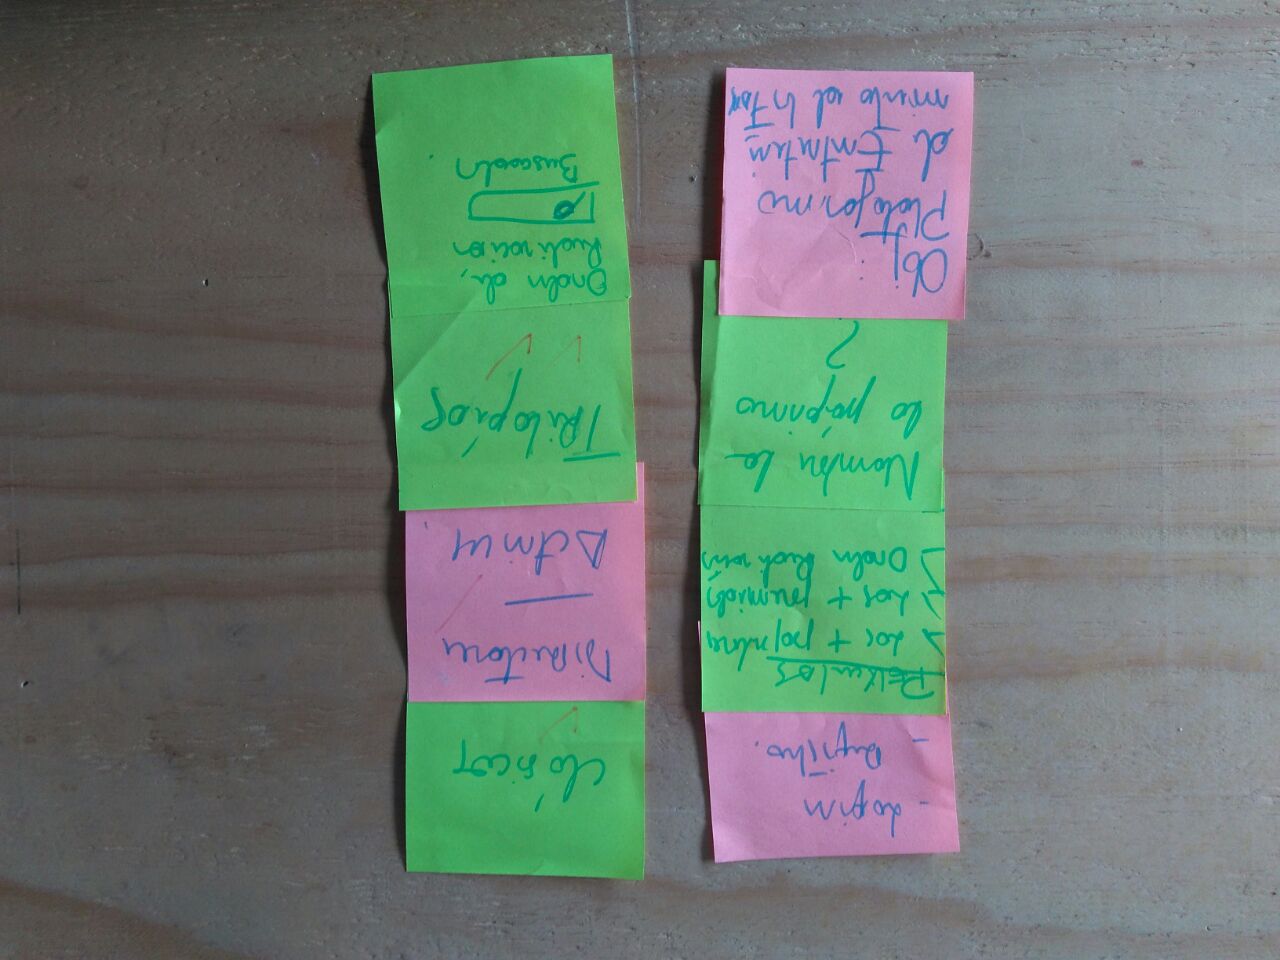 - Login
- Registro.
Películas
> Las + populares
> Las + premiadas
> Orden Realización
Nombre la
la página
?
Obj:
Plataforma
de Entreteni
miento
Clásicos
Directores
Actrices.
Trilogías
Orden de
Realización
Buscador.